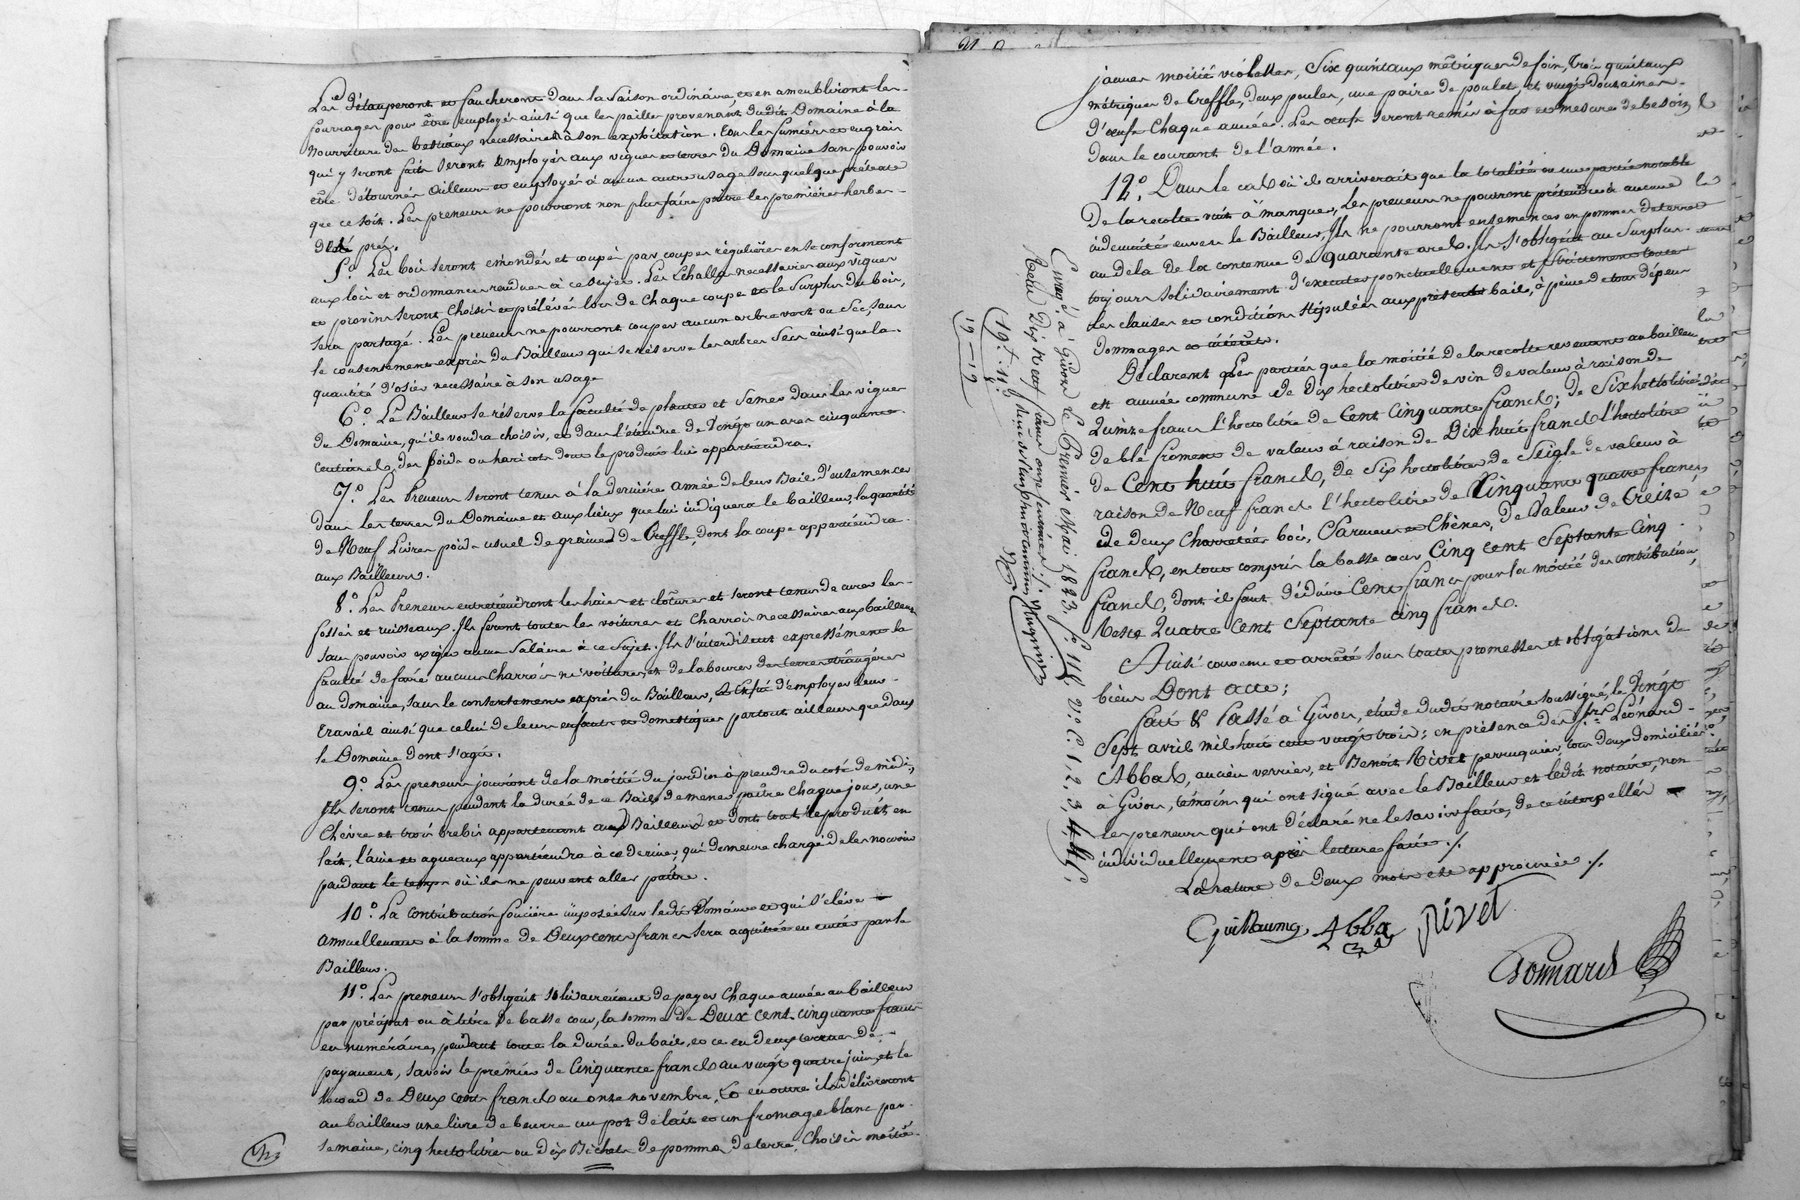 Les étauperont et faucheront dans la saison ordinaire, et en ameubliront les
fourrages pour être employés ainsi que les pailles provenant dudit Domaine à la
nourriture des bestiaux necessaires à son exploitation. Tous les fumiers et engrais
qui y seront faits seront employés aux vignes et terres du Domaine sans pouvoir
être détournés ailleurs et employés à aucun autre usage sous quelque prétexte
que ce soit. Les preneurs ne pourront non plus faire paitre les premières herbes
des prés.
5.° Les bois seront émondés et coupés par coupes régulières en se conformant
aux lois et ordonnances rendues à ce sujet. Les Echallas necessaires aux vignes
et provins seront choisis et prélévés lors de chaque coupe et le surplus du bois,
sera partagé. Les preneurs ne pourront couper aucun arbre vert ou sec, sans
le consentement exprès du Bailleur qui se réserve les arbres secs ainsi que la
quantité d'osier necessaire à son usage
6.° Le Bailleur se réserve la faculté de planter et semer dans les vignes
du Domaine, qu'il voudra choisir, et dans l'étendue de vingt un ares cinquante
centiares, des pois ou haricots dont le produit lui appartiendra.
7.° Les Preneurs seront tenus à la dernière année de leur Bail d'ensemencer
dans les terres du Domaine et aux lieux que lui indiquera le bailleur, la quantité
de Neuf Livres poids usuel de graines de Treffle, dont la coupe appartiendra
aux Bailleurs.
8.° Les Preneurs entretiendront les haies et clôtures et seront tenus de curer les
fossés et ruisseaux. Ils feront toutes les voitures et Charrois necessaires aux bailleurs
sans pouvoir exiger aucun Salaire à ce Sujet. Ils s'interdisent expressément la
faculté de faire aucuns Charrois ni voitures, et de labourer des terres étrangères
au domaine, sans le consentement exprès du Bailleur, d'employer leur
travail ainsi que celui de leurs enfants et domestiques partout ailleurs que dans
le Domaine dont s'agit.
9.° Les preneurs jouiront de la moitié du jardin à prendre du coté de midi,
Ils seront tenus pendant la durée de ce Bail de mener paître chaque jour, une
Chèvre et trois brebis appartenant aux Bailleurs et dont tout le produit en
lait, laine et agneaux appartiendra à ce dernier, qui demeure chargé de les nourrir
pendant le temps où ils ne peuvent aller paître.
10.° La contribution foncière imposée sur ledit Domaine et qui s'elève
annuellement à la somme de Deux cents francs sera acquittée en entier par le
Bailleur.
11.° Les preneurs s'obligent solidairement de payer chaque année au bailleur
par préciput ou à titre de basse cour, la somme de Deux cent cinquante francs
en numéraire, pendant toute la durée du bail, et ce en deux termes de
payement, savoir le premier de Cinquante francs au vingt quatre juin, et le
second de Deux cents francs au onze novembre. Et en outre ils délivreront
au bailleur une livre de beurre un pot de lait et un fromage blanc par
semaine, cinq hectolitres ou dix Bichets de pommes de terre, choisies moitié
jaunes moitié violettes, Six quintaux métriques de foin, trois quintaux
métriques de treffle, deux poules, une paire de poulets et vingt douzaines
d'œufs chaque année. Les œufs seront remis à fur et mesure de besoin,
dans le courant de l'année.
12.° Dans le cas où il arriverait que la totalité ou une partie notable
de la recolte vint à manquer, Les preneurs ne pourront prétendre à aucune
indemnité envers le Bailleur. Ils ne pourront ensemencer en pommes de terre
au dela de la contenue de quarante ares. Ils s'obligent au Surplus
toujours solidairement d'executer ponctuellement et strictement toutes
les clauses et conditions stipulées aux présent bail, à peine de tous dépens
dommages et intérêts.
Déclarent Les parties que la moitié de la recolte revenant au bailleur
est année commune de Dix hectolitres de vin de valeur à raison de
Quinze francs l'hectolitre de Cent Cinquante francs; de Six hectolitres
de blé froment de valeur à raison de Dix huit francs l'hectolitre
de Cent huit francs, de Six hectolitres de Seigle de valeur à
raison de Neuf francs l'hectolitre de Cinquante quatre francs
et de deux Charretées bois, Sarments et Chênes, de valeur de Treize
francs, en tout compris la basse cour Cinq cent Septante Cinq
francs, dont il faut déduire Cent francs pour la moitié des contributions,
Reste Quatre cent Septante cinq francs.
Ainsi convenu et arrêté sous toutes promesses et obligations de
biens Dont acte;
fait & Passé à Givors, étude dudit notaire soussigné, le vingt
Sept avril mil huit cent vingt trois; en présence des srs Léonard
Abbal, ancien verrier, et Benoit Rivet perruquier, tous deux domiciliés
à Givors, témoins qui ont signé avec le Bailleur et ledit notaire, non
les preneurs qui ont déclaré ne le savoir faire, de ce interpellés
individuellement après lecture faite ./.
La rature de deux mots est approuvée ./.
Guillaume Abba Rivet
Bonnard
Enreg.é à Givors le Premier Mai 1823. f.° 118 v.° C. 1, 2, 3, 4, &5,
Reçu Dix Neuf francs onze centimes
19 — 19